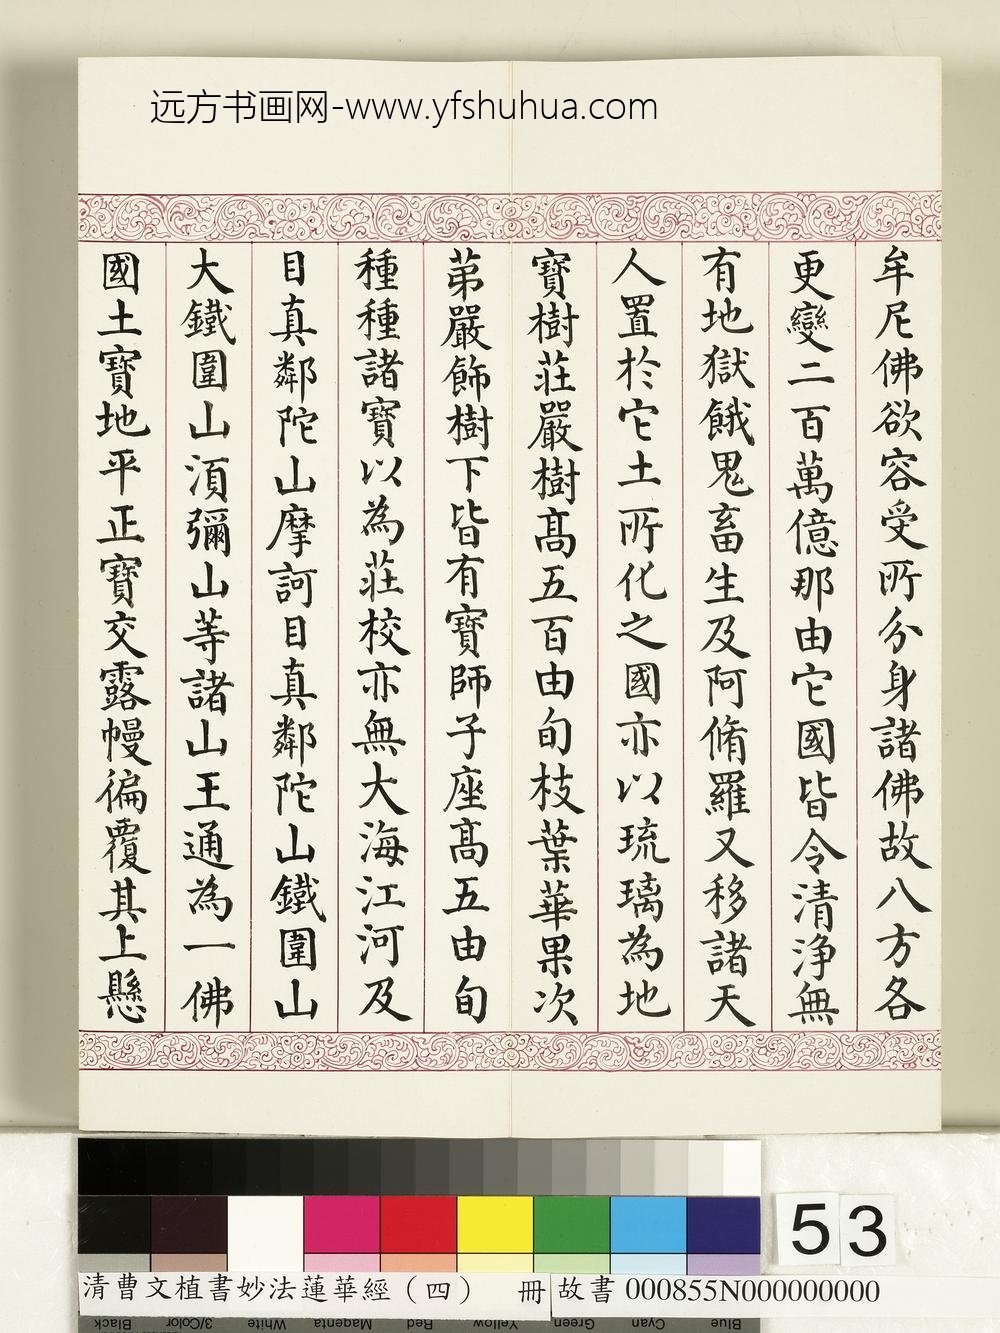 远方书画网-www.yfshuhua.com
牟尼佛欲容受所分身諸佛故八方各
更變二百萬億那由它國皆令清淨無
有地獄餓鬼畜生及阿脩羅又移諸天
人置於它土所化之國亦以琉璃為地
寶樹莊嚴樹髙五百由旬枝葉華果次
苐嚴飾樹下皆有寶師子座髙五由旬
種種諸寶以為莊校亦無大海江河及
目真鄰陀山摩訶目真鄰陀山鐵圍山
大鐵圍山湏彌山等諸山王通為一佛
國土寶地平正寶交露幔徧覆其上懸
53
清曹文植書妙法蓮華經（四） 冊
故書 000855N000000000
Black 3/Color White Magenta Red Yellow Green Cyan Blue